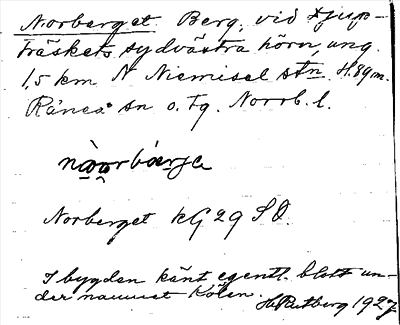 Norberget. Berg, vid Djup-
träskets sydvästra hörn, ung.
1,5 km N Niemisel stn. H. 89 m.
Råneå sn o. tg. Norrb. l.
Norberget kG 29 SO.
I bygden känt egentl. blott un-
der namnet Kölen. H. Rutberg 1927